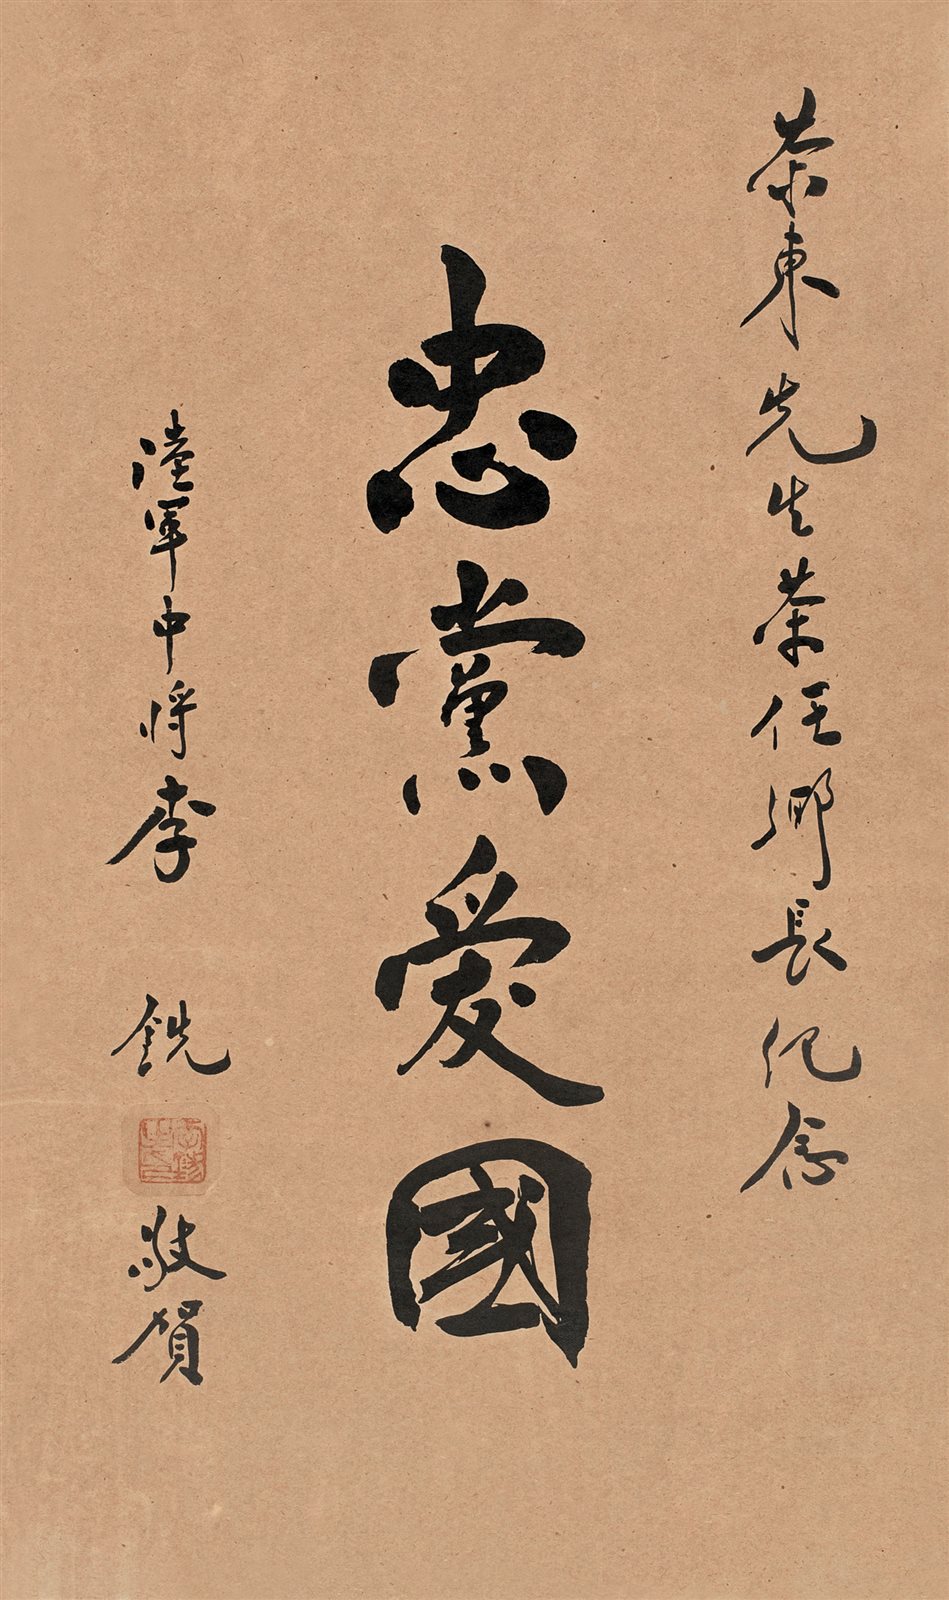 荣東先生荣任鄉長纪念
忠黨愛國
陸軍中将李銑
敬賀